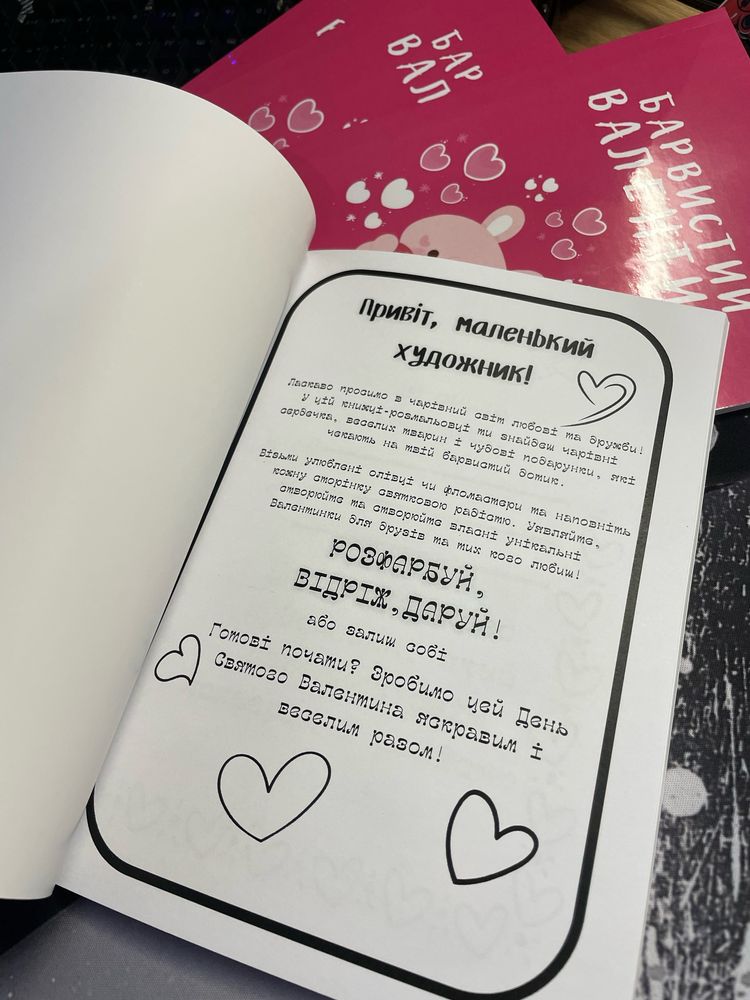 БАР
ВАЛ
БАРВИСТИЙ
ВАЛЕНТИН
Привіт, маленький
художник!
Ласкаво просимо в чарівний світ любові та дружби!
У цій книжці-розмальовці ти знайдеш чарівні
сердечка, веселих тварин і чудові подарунки, які
чекають на твій барвистий дотик.
Візьми улюблені олівці чи фломастери та наповніть
кожну сторінку святковою радістю. Уявляйте,
створюйте та створюйте власні унікальні
Валентинки для друзів та тих кого любиш!
РОЗФАРБУЙ,
ВІДРІЖ,ДАРУЙ!
або залиш собі
Готові почати? Зробимо цей День
Святого Валентина яскравим і
веселим разом!